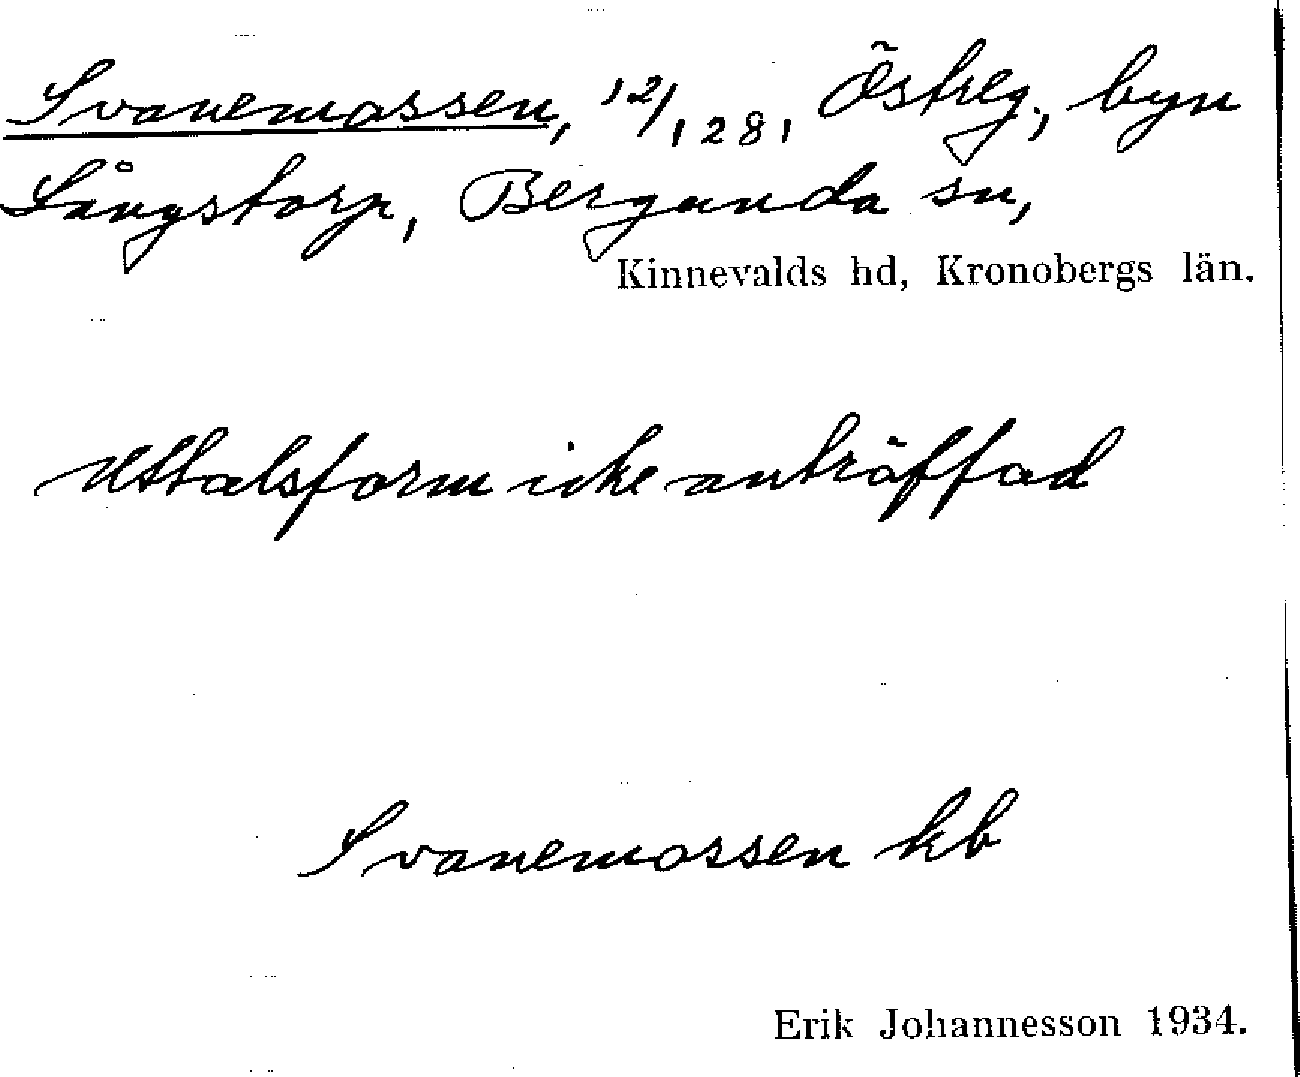 Svanemossen, 12/128, Östreg, byn
Långstorp, Bergunda sn,
Kinnevalds hd, Kronobergs län.
Uttalsform icke anträffad
Svanemossen kb
Erik Johannesson 1934.